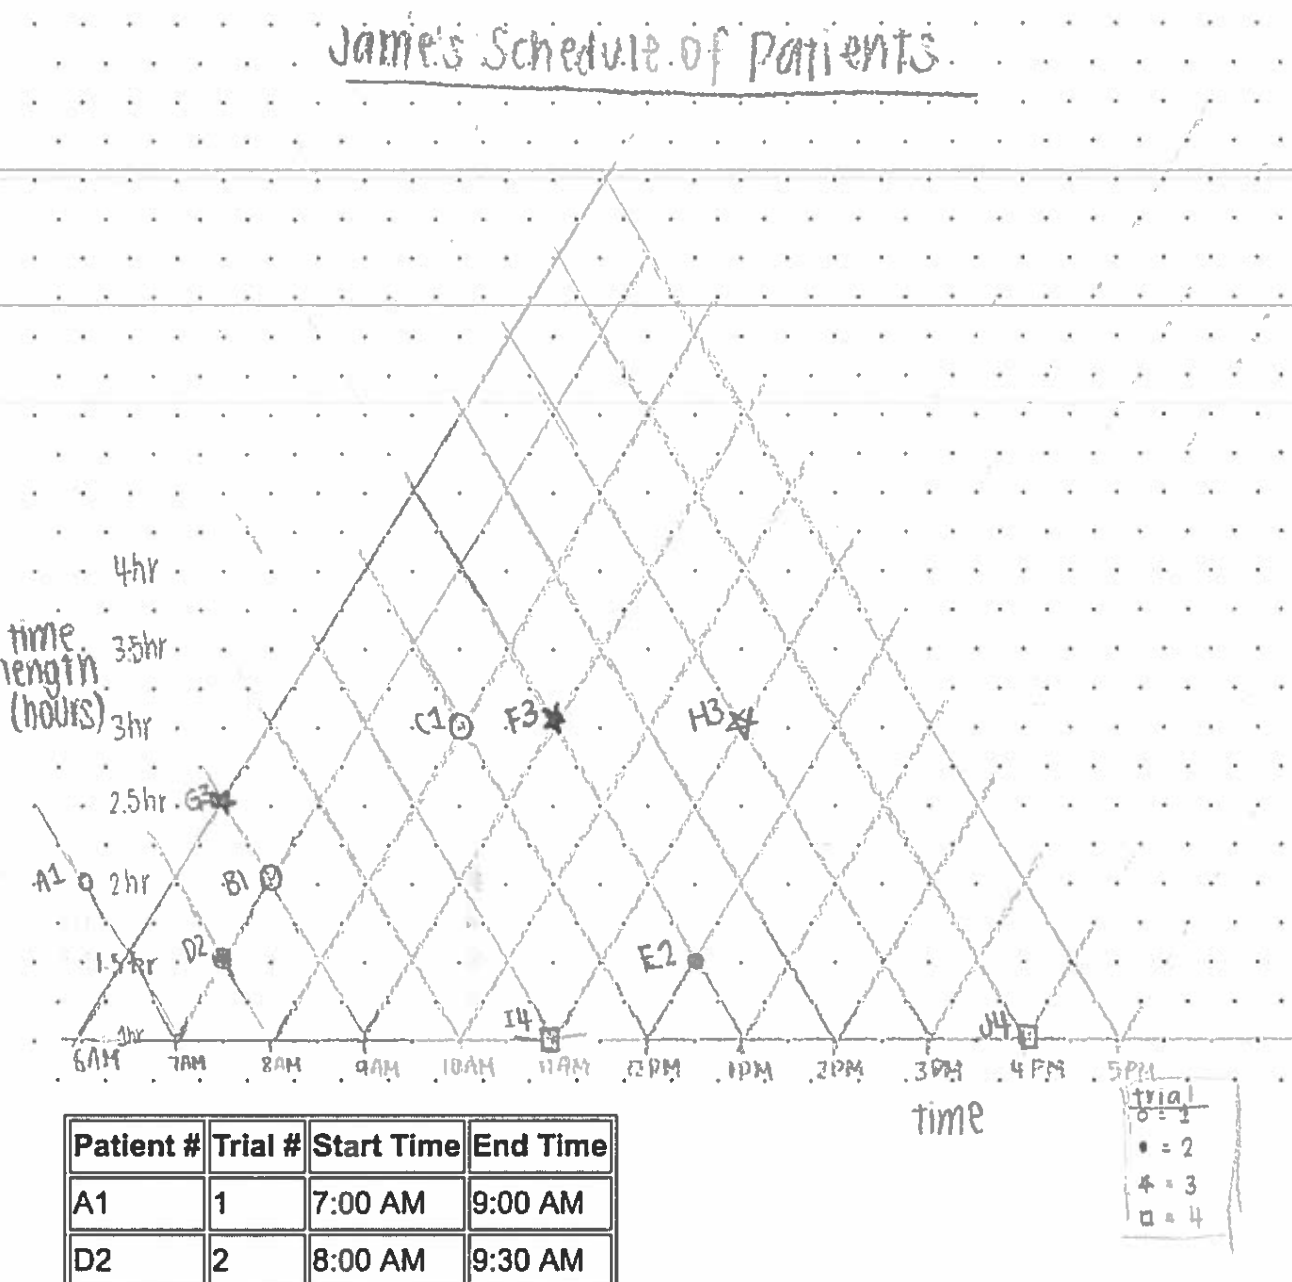 Jame's Schedule of Patients
4hr
time length (hours)
3.5hr
C1 F3 H3
3hr
G3 2.5hr
A1 2hr B1
1.5hr D2 E2
1hr I4 J4
6AM 7AM 8AM 9AM 10AM 11AM 12PM 1PM 2PM 3PM 4PM 5PM
time
trial
o = 1
• = 2
☆ = 3
□ = 4
Patient # Trial # Start Time End Time
A1 1 7:00 AM 9:00 AM
D2 2 8:00 AM 9:30 AM